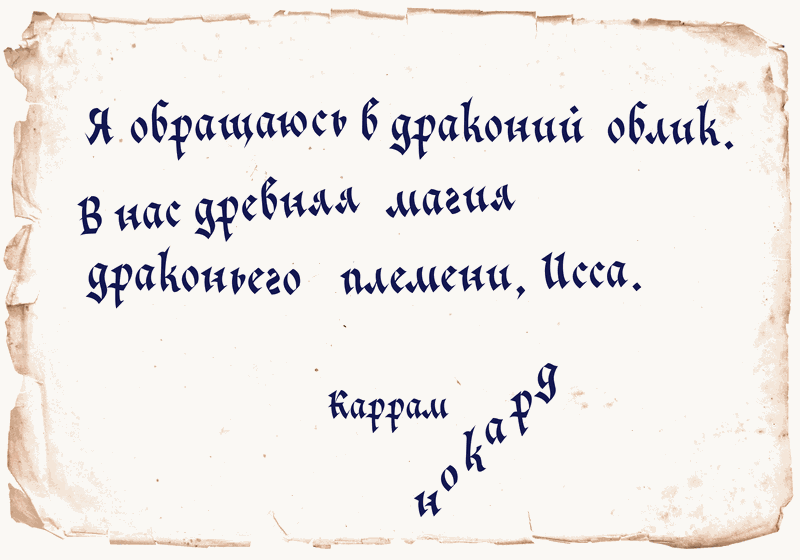 Я обращаюсь в драконий облик.
В нас древняя магия
драконьего племени, Исса.
Каррам
нокард